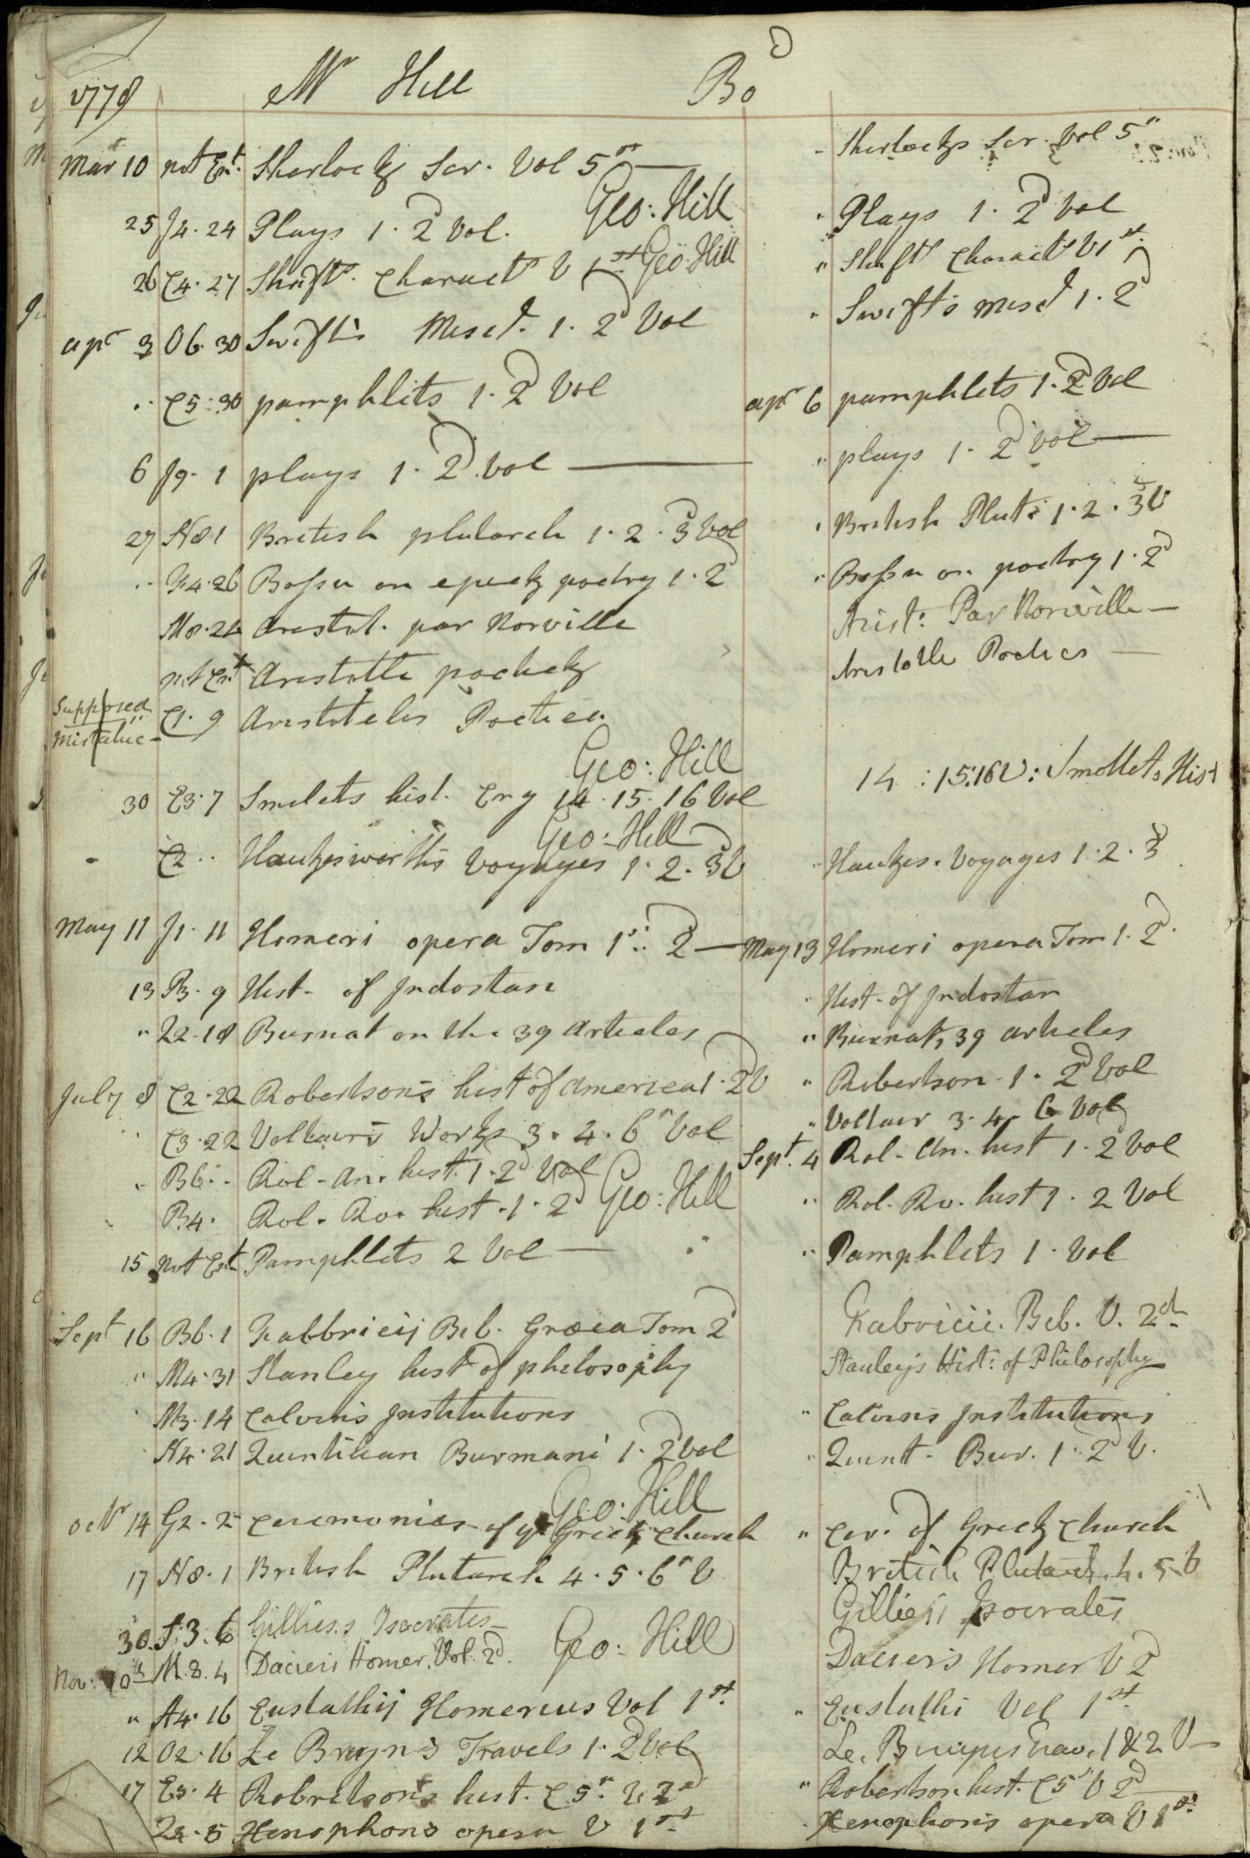 1778 Mr Hill Bo D
Mar 10 not Ent Sherlocks Ser. Vol 5th — Sherlocks Ser. Vol 5th
25 J4. 24 Plays 1. 2d Vol. Geo: Hill Plays 1. 2d Vol
26 C4. 27 Shaft. Charact V 1st Geo: Hill Shaft Charact V 1st
apr 3 O6. 30 Swift's Miscl. 1. 2d Vol Swift's Miscl 1. 2d
C5. 30 pamphlits 1. 2d Vol apr 6 pamphlets 1. 2d Vol
6 J9. 1 plays 1. 2d Vol — plays 1. 2d Vol —
27 N8 1 British plutarch 1. 2. 3d Vol British Plut: 1. 2. 3d V
F4. 26 Bossu on epick poetry 1. 2d Bossu on poetry 1. 2d
M8. 24 Aristot. par Norville Arist: Par Norville —
not Ent Aristotle poeticks Aristotle Poetics —
Supposed C1. 9 Aristotelis Poetica
Mistake —
Geo: Hill
30 E3. 7 Smolets hist. Eng 14. 15. 16 Vol 14 : 15: 16 V: Smollets Hist
Geo: Hill
C2 Hawkesworth's Voyages 1. 2. 3d V Hawkes. Voyages 1. 2. 3
May 11 J1. 11 Homeri opera Tom 1st: 2d — May 13 Homeri opera Tom 1. 2d
13 P3. 9 Hist. of Indostan Hist. of Indostan
" 22. 18 Burnat on the 39 Articles " Burnat, 39 articles
July 8 C2. 22 Robertson's hist of America 1. 2d V " Robertson 1. 2d Vol
C3. 22 Voltairs Works 3. 4. 6th Vol " Voltair 3. 4. 6 Vol
B6. Rol. An. hist. 1. 2d Vol Sept. 4 Rol. An. hist 1. 2 Vol
B4. Rol. Ro. hist. 1. 2d Geo: Hill " Rol. Ro. hist 1. 2 Vol
15 Not Ent Pamphlets 2 Vol — " Pamphlets 1. Vol
Sept 16 B6. 1 Fabbricij Bib. Græca Tom 2d Fabricii. Bib. V. 2d
" M4. 31 Stanley hist of philosophy Stanley's Hist: of Philosophy
M3. 14 Calvins Institutions " Calvins Institutions
N4. 21 Quintilian Burmani 1. 2d Vol " Quint. Bur. 1. 2d V.
Geo: Hill
octr 14 G2. 2 Ceremonies of ye Greek church " Cer. of Greek church
17 N8. 1 British Plutarch 4. 5. 6th V British Plutarch. 4. 5. V
30 J. 3. 6 Gillies's Isocrates — Gillies's Isocrates
Nov. 10th M. 8. 4 Daciers Homer. Vol. 2d. Geo: Hill Daciers Homer V 2d
" A4. 16 Eustathij Homerus Vol 1st " Eustathi Vol 1st
12 O2. 16 Le Bruyn's Travels 1. 2d Vol Le. Bruyns Trav. 1 & 2 V —
17 E3. 4 Robertsons hist. C 5th V. 2d " Robertson hist. C 5th V 2d
22. 5 Xenophons opera V 1st Xenophons opera V 1st